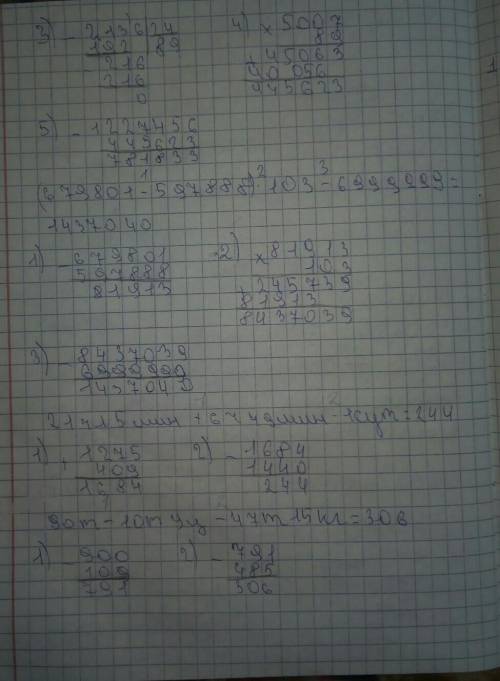 3) - 2136 | 24
192 | 89
- 216
216
0
4) × 5007
89
+ 45063
40056
445623
5) - 1227456
445623
781833
(679801 - 597888) · 103 - 6999999 =
1437040
1) - 679801
597888
81913
2) × 81913
103
+ 245739
81913
8437039
3) - 8437039
6999999
1437040
21ч 15 мин + 6ч 49 мин - 1 сут = 244
1) + 1275
409
1684
2) - 1684
1440
244
90т - 10т 9ц - 47т 15кг = 306
1) - 900
109
791
2) - 791
485
306